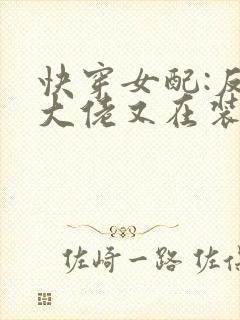 快穿女配:反
大佬又在装
佐崎一路 佐伯